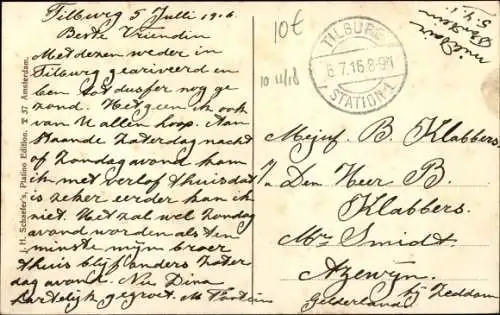 Tilburg 5 Juli 1916
Beste Vriendin
Met dezen weder in
Tilburg gearriveerd en
ben tot dusfer nog ge
zond. Hetgeen ik ook
van U allen hoop. Aan
staande Zaterdag nacht
of Zondag avond kom
ik met verlof thuis dat
is zeker eerder kan ik
niet. Het zal wel Zondag
avond worden als ten
minste mijn broer
thuis blijf anders Zater
dag avond. Nu Dina
hartelijk gegroet. M
J. H. Schaefer's, Platino Edition. T 37 Amsterdam.
10€
10 11/18
TILBURG
6.7.16.8-9V
STATION 1
Mejuf. B. Klabbers.
p/a Den Heer B
Klabbers.
Mr Smidt
Azewijn.
bij Zeddam
Gelderland